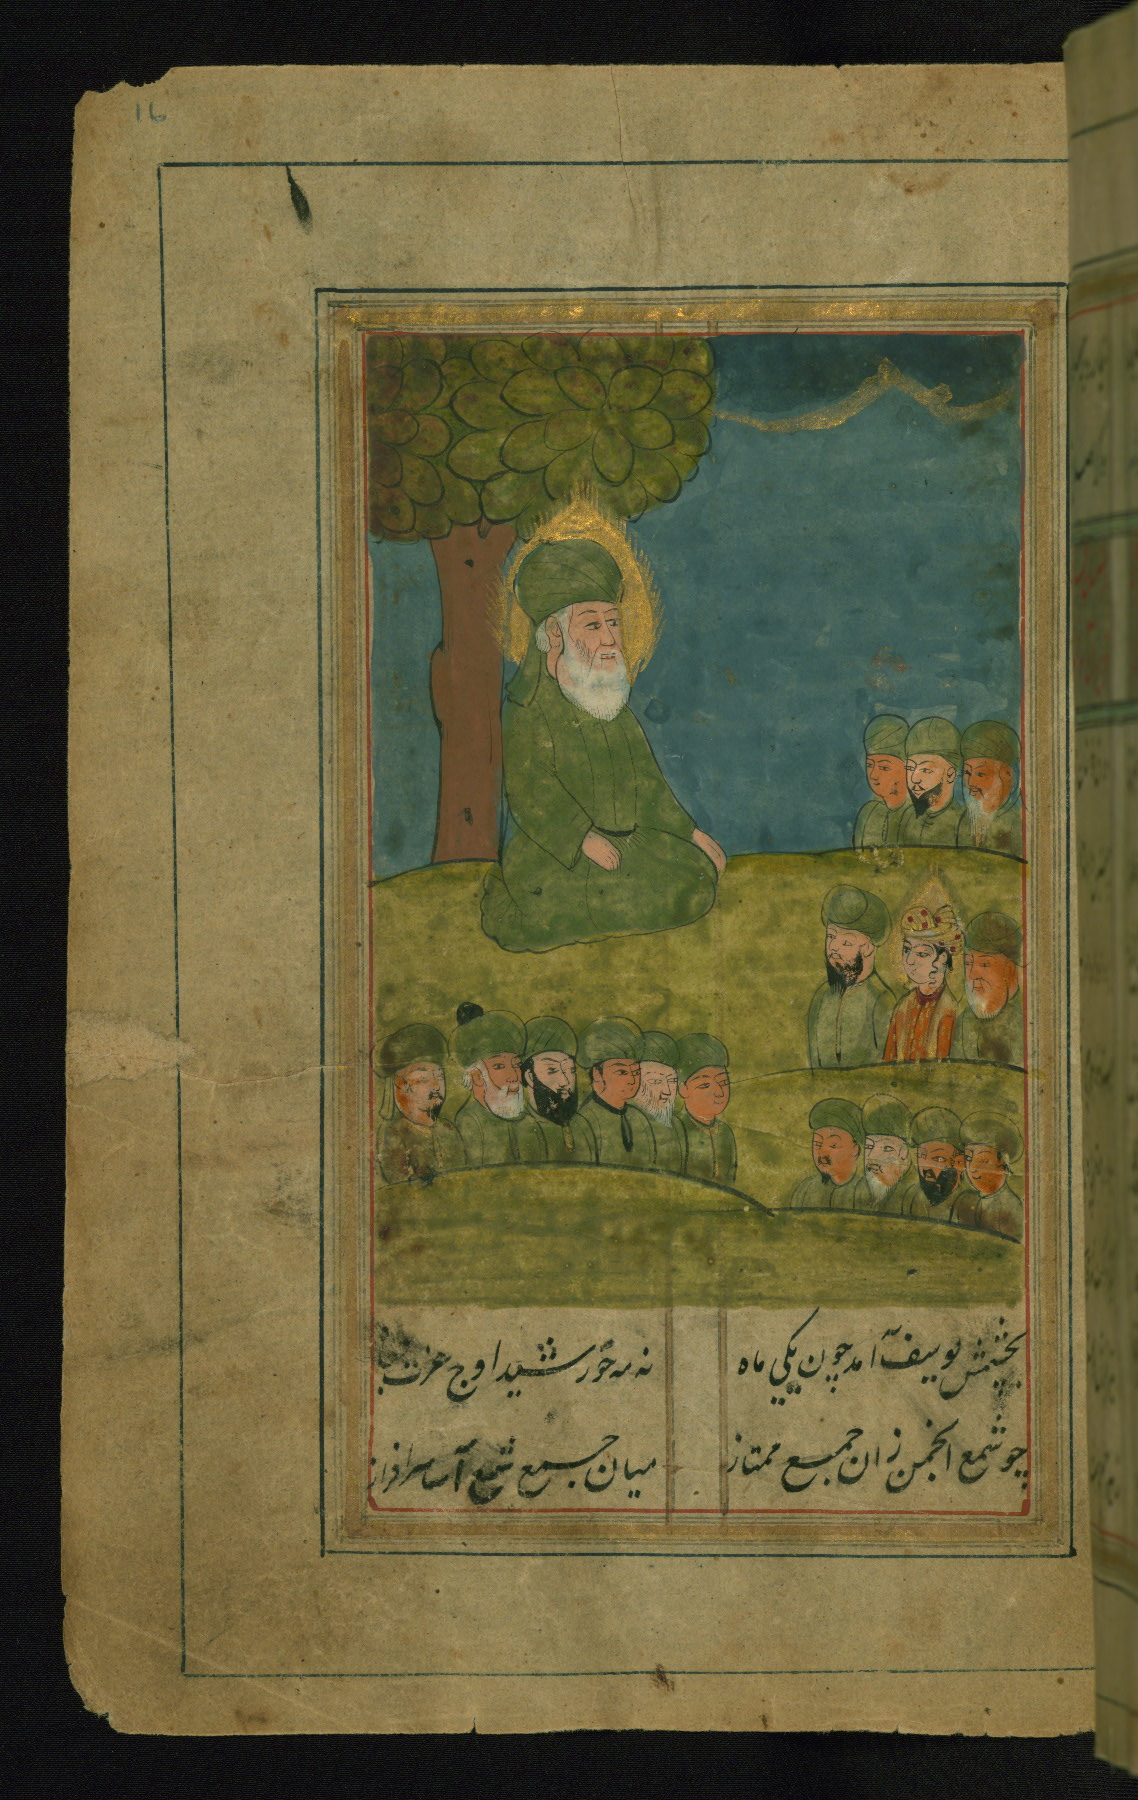 16
بچشمش یوسف آمد چون یکی ماه نه مه خورشید اوج عزت
چو شمع انجمن زان جمع ممتاز میان جمع شمع آسا سرافراز